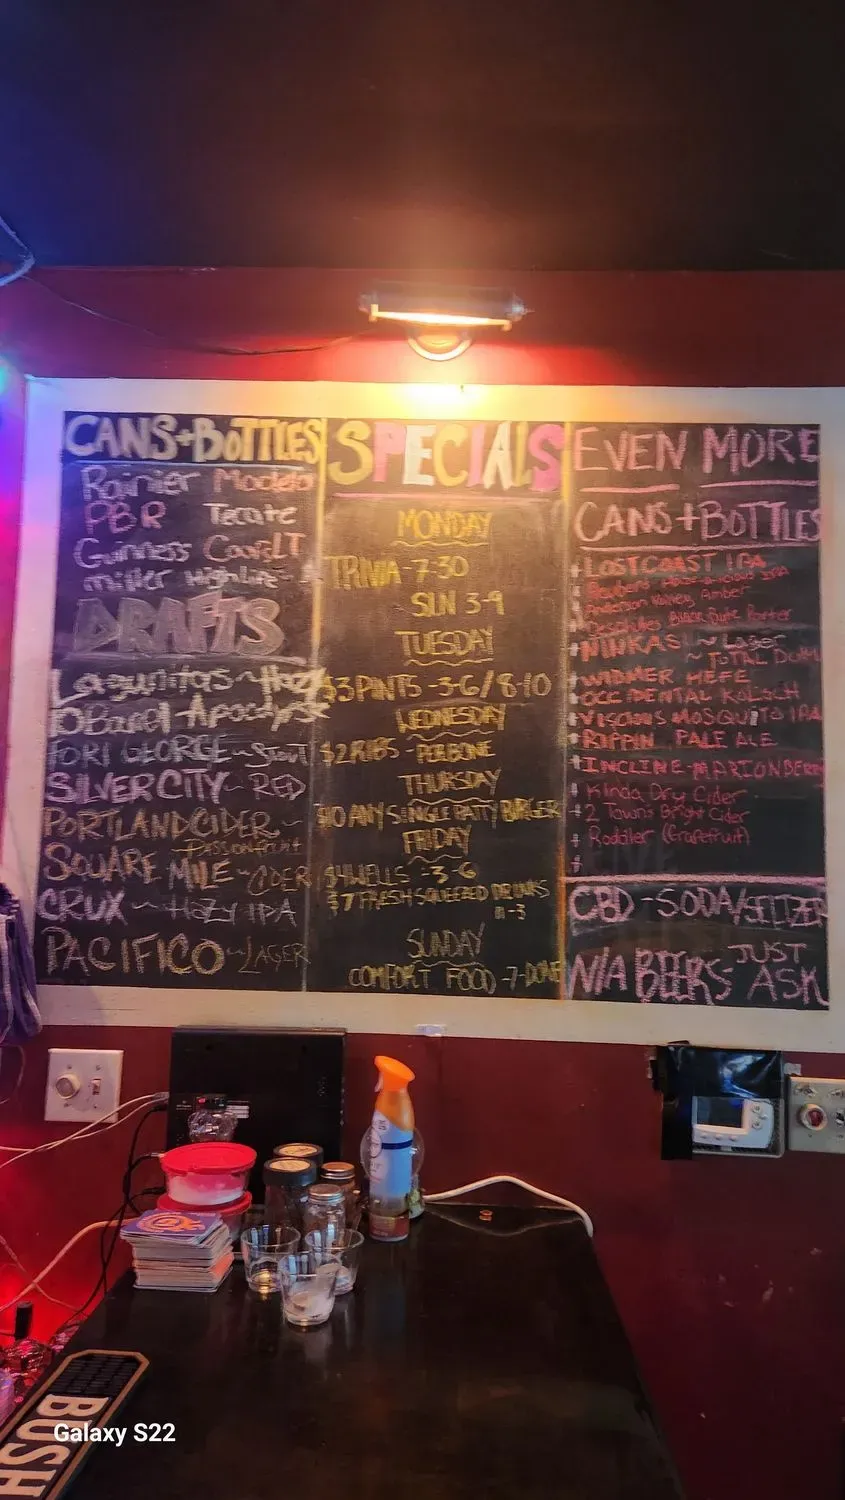 CANS+BOTTLES
Rainier Modelo
PBR Tecate
Guinness Coors LT
miller Highlife
DRAFTS
Lagunitas~Hazy
10 Barrel-Apocalypse
FORT GEORGE~Stout
SILVER CITY~RED
PORTLAND CIDER~
Passionfruit
SQUARE MILE~CIDER
CRUX~HaZy IPA
PACIFICO~LAGER
SPECIALS
MONDAY
TRIVIA-7-30
SIN 3-9
TUESDAY
$3 PINTS-3-6/8-10
WEDNESDAY
$2 RIBS-PER BONE
THURSDAY
$10 ANY SINGLE PATTY BURGER
FRIDAY
$4 WELLS-3-6
$7 FRESH SQUEEZED DRINKS
11-3
SUNDAY
COMFORT FOOD-7-DONE
EVEN MORE
CANS+BOTTLES
LOST COAST IPA
IPA
Anderson Valley Amber
Deschutes Black Butte Porter
NINKASI~Lager
~TOTAL Dom
WIDMER HEFE
OCCIDENTAL KOLSCH
VISCIOUS MOSQUITO IPA
RIPPIN PALE ALE
INCLINE-MARIONBERRY
Kinda Dry Cider
2 Towns Bright Cider
Roddler (Grapefruit)
CBD-SODA/SELTZER
N/A BEERS-JUST
ASK
BUSH
Galaxy S22